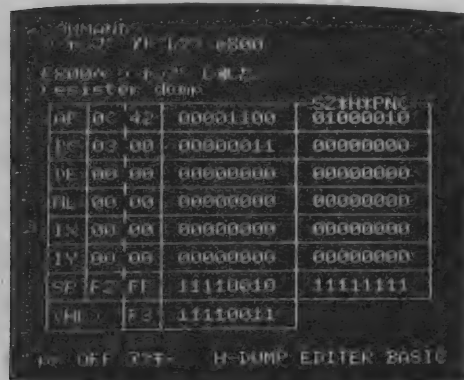 COMMAND
register dump
SZ*H*PNC
AF 0C 42 00001100 01000010
BC 03 00 00000011 00000000
DE 00 00 00000000 00000000
HL 00 00 00000000 00000000
IX 00 00 00000000 00000000
IY 00 00 00000000 00000000
SP F2 FF 11110010 11111111
(HL) F3 11110011
OFF H-DUMP EDITER BASIC